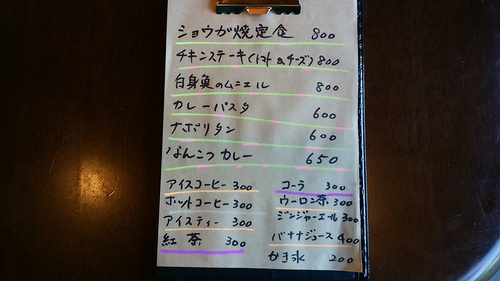 ショウガ焼定食 800
チキンステーキ(トマト&チーズ) 800
白身魚のムニエル 800
カレーパスタ 600
ナポリタン 600
なんこつカレー 650
アイスコーヒー 300
ホットコーヒー 300
アイスティー 300
紅茶 300
コーラ 300
ウーロン茶 300
ジンジャーエール 300
バナナジュース 400
かき氷 200